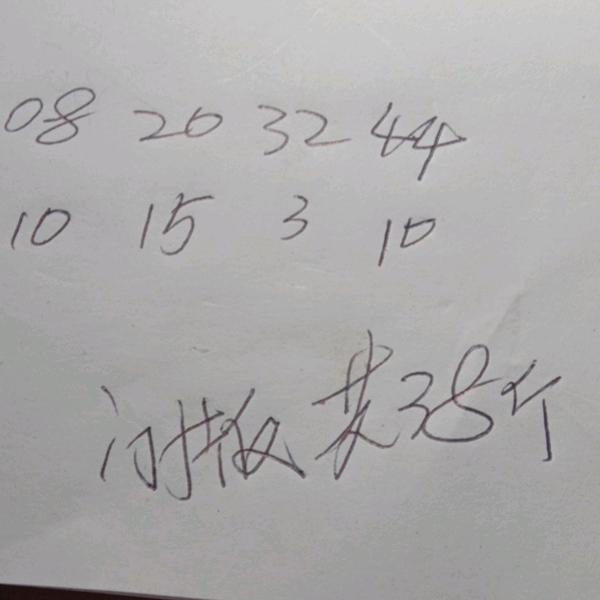 08 20 32 44
10 15 3 10
门板 共38个